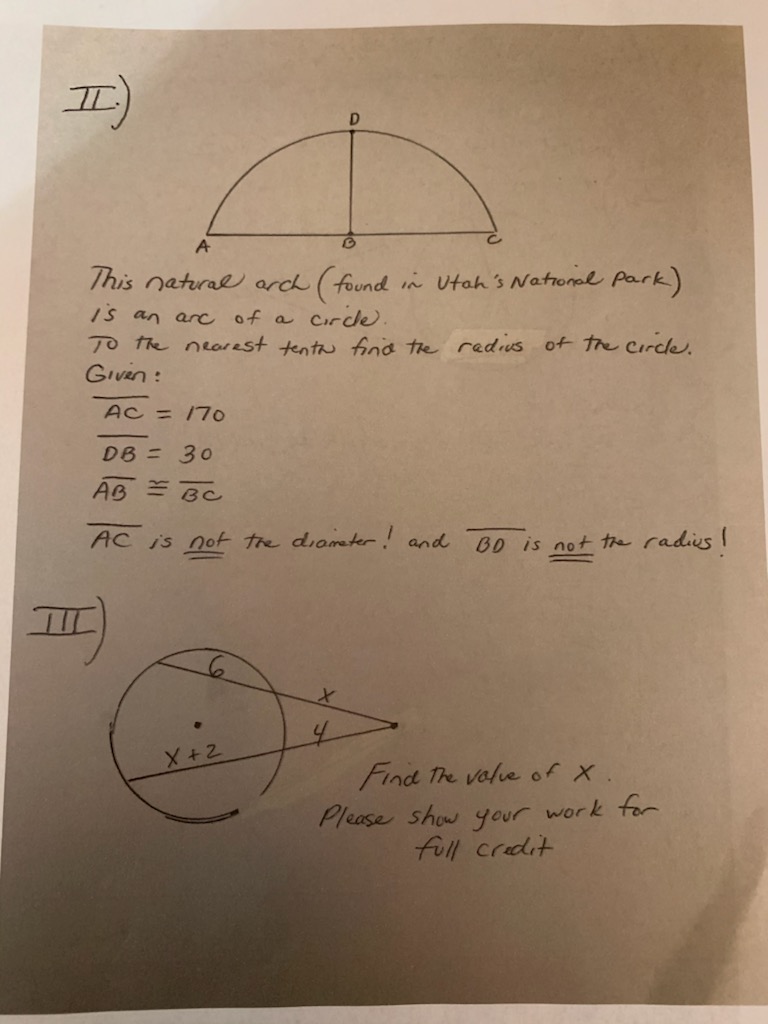 II.)
D
A B C
This natural arch (found in Utah's National Park)
is an arc of a circle.
To the nearest tenth find the radius of the circle.
Given:
AC = 170
DB = 30
AB ≅ BC
AC is not the diameter! and BD is not the radius!
III)
6
x
4
x+2
Find the value of x.
Please show your work for
full credit